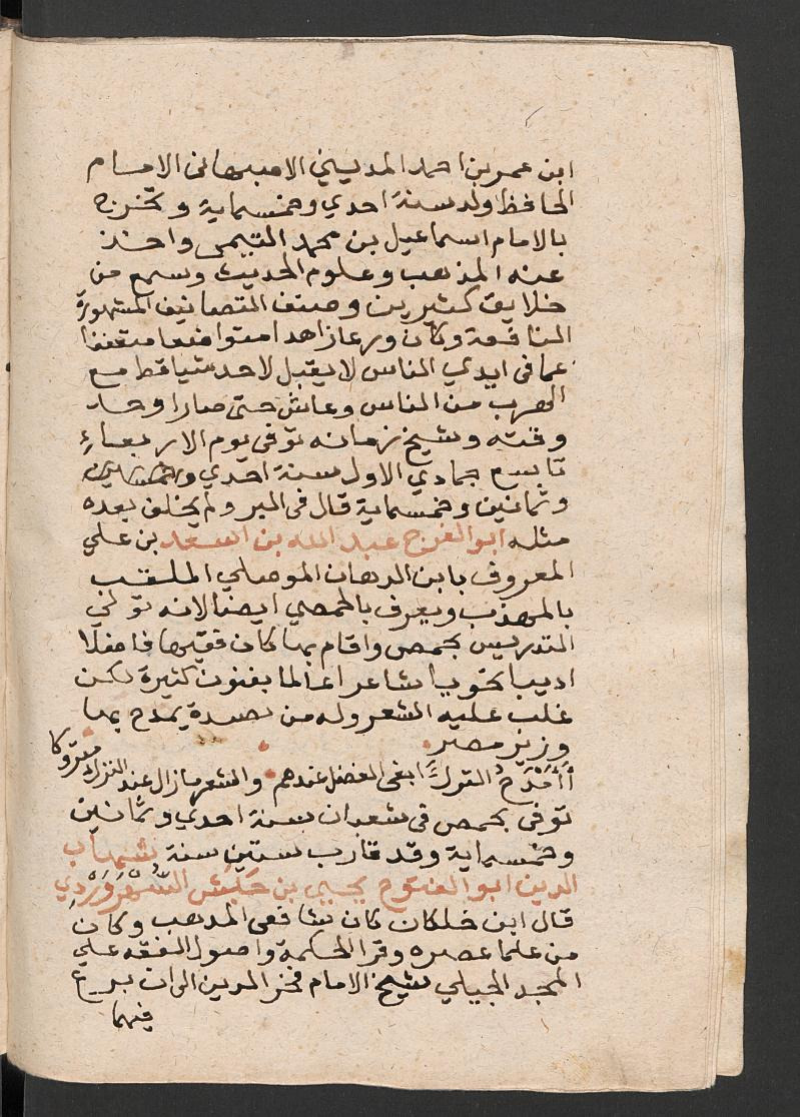 ابن عمر بن احمد المديني الاصبهاني الامام
الحافظ ولد سنة احدي وخمسماية وتخرج
بالامام اسماعيل بن محمد التيمي واخذ
عنه المذهب وعلوم الحديث وسمع من
خلايق كثيرين وصنف التصانيف المشهورة
النافعة وكان ورعا زاهدا متواضعا متعففا
عما في ايدي الناس لا يقبل لاحد شيا قط مع
الهرب من الناس وعاش حتى صار اوحد
وقته وشيخ زمانه توفى يوم الاربعاء
تاسع جمادي الاول سنة احدي
وثمانين وخمسماية قال في العبر ولم يخلف بعده
مثله ابو الفرج عبد الله بن اسعد بن علي
المعروف بابن الدهان الموصلي الملقب
بالمهذب ويعرف بالحمصي ايضا لانه تولي
التدريس بحمص واقام بها كان فقيها فاضلا
اديبا نحويا شاعرا عالما بفنون كثيرة لكن
غلب عليه الشعر وله من قصيدة يمدح بها
وزير مصر
أأمدح الترك ابغى الفضل عندهم والشعر ما زال عند الترك متروكا
توفى بحمص في شعبان سنة احدي وثمانين
وخمسماية وقد قارب ستين سنة شهاب
الدين ابو الفتوح يحيى بن حبش السهروردي
قال ابن خلكان كان شافعى المذهب وكان
من علما عصره وقرا الحكمة واصول الفقه علي
المجد الجيلي شيخ الامام فخر الدين الى ان برع
فيهما